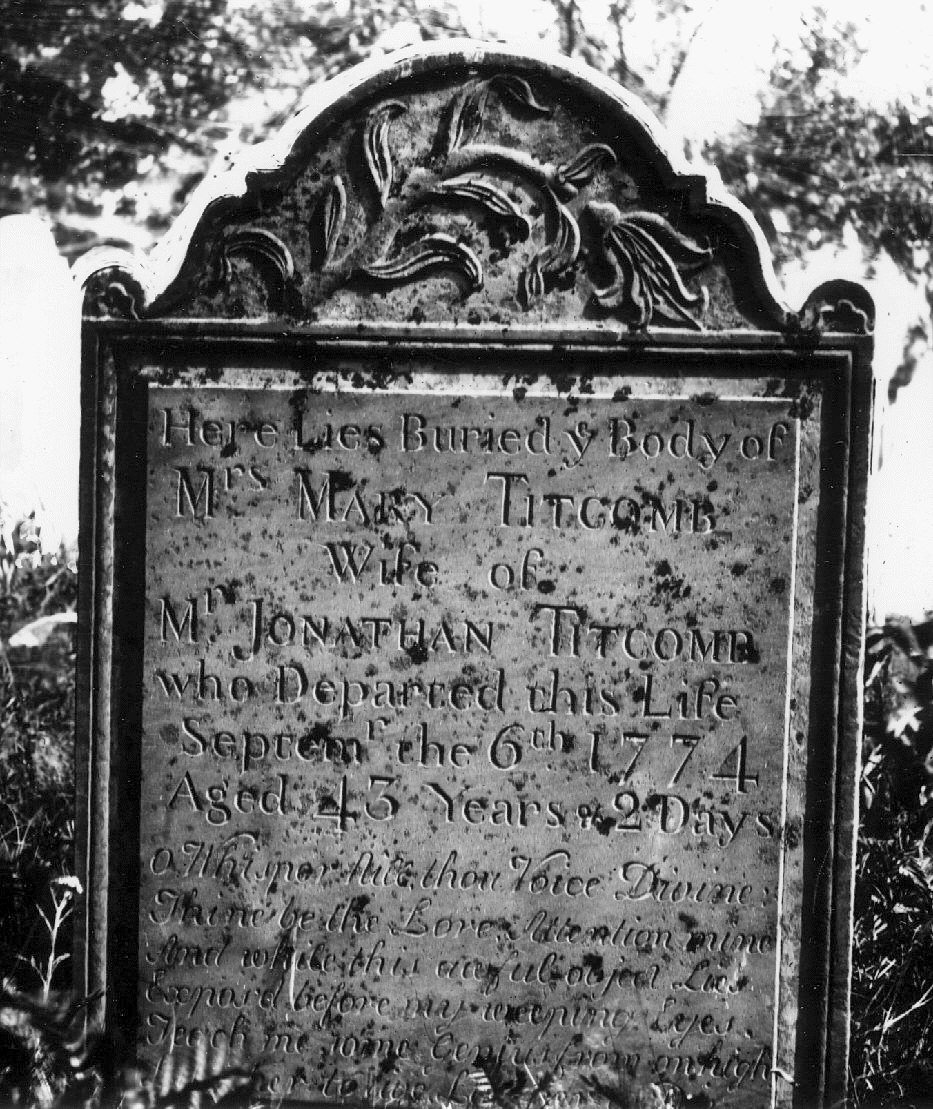 Here Lies Buried yͤ Body of
Mrs MARY TITCOMB
Wife of
Mr JONATHAN TITCOMB
who Departed this Life
Septemr the 6th 1774
Aged 43 Years & 2 Days
O Whisper still thou Voice Divine:
Thine be the Lore, Attention mine
And while this awful object Lies
Expos'd before my weeping Eyes.
Teach me some Genius from on high
her to live